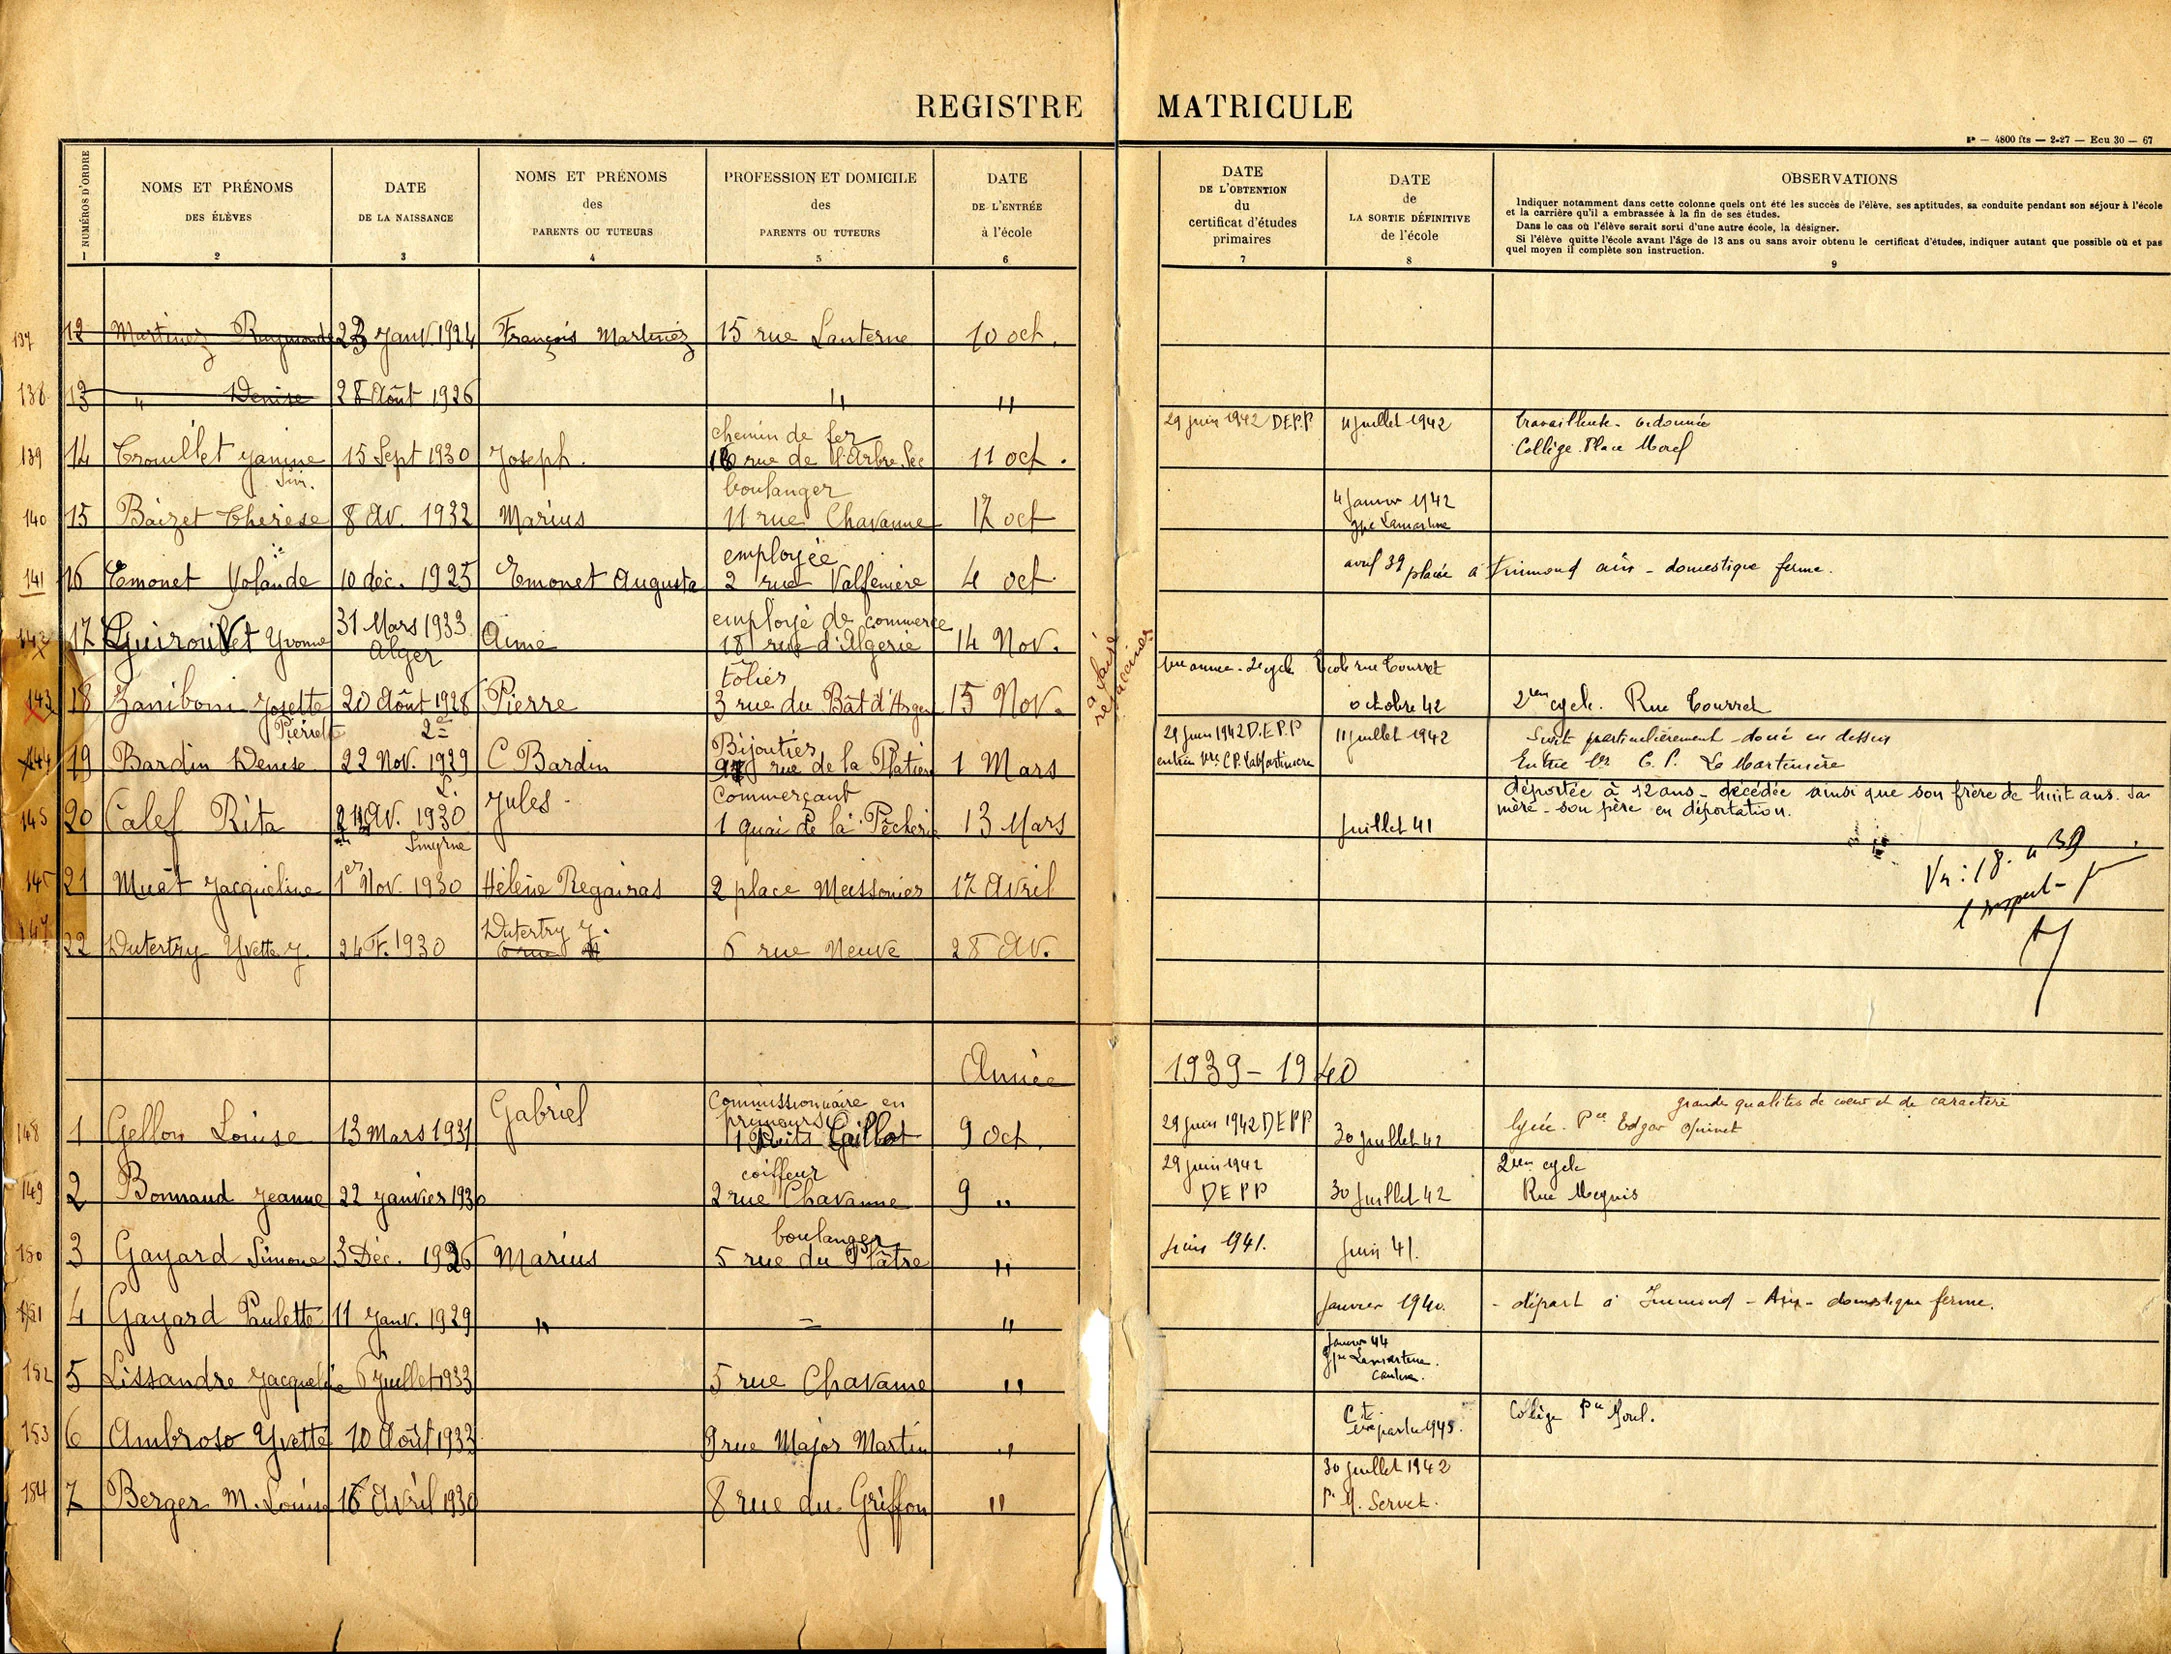 REGISTRE MATRICULE
P — 4800 fts — 2-27 — Ecu 30 — 67
NUMÉROS D'ORDRE
1
NOMS ET PRÉNOMS
DES ÉLÈVES
2
DATE
DE LA NAISSANCE
3
NOMS ET PRÉNOMS
des
PARENTS OU TUTEURS
4
PROFESSION ET DOMICILE
des
PARENTS OU TUTEURS
5
DATE
DE L'ENTRÉE
à l'école
6
DATE
DE L'OBTENTION
du
certificat d'études
primaires
7
DATE
de
LA SORTIE DÉFINITIVE
de l'école
8
OBSERVATIONS
Indiquer notamment dans cette colonne quels ont été les succès de l'élève, ses aptitudes, sa conduite pendant son séjour à l'école
et la carrière qu'il a embrassée à la fin de ses études.
Dans le cas où l'élève serait sorti d'une autre école, la désigner.
Si l'élève quitte l'école avant l'âge de 13 ans ou sans avoir obtenu le certificat d'études, indiquer autant que possible où et par
quel moyen il complète son instruction.
9
137 12 Martinez Raymonde 23 Janv. 1924 François Martinez 15 rue Lanterne 10 oct.
138 13 " Denise 28 Août 1926 " "
chemin de fer 29 juin 1942 DEPP 11 juillet 1942 travailleuse - ordonnée
139 14 Trouillet Janine 15 Sept 1930 Joseph. 16 rue de l'Arbre Sec 11 oct. Collège Place Morel
boulanger
140 15 Baizet Thérèse 8 Av. 1932 Marius 11 rue Chavanne 17 oct 4 Janvier 1942
gpe Lamartine
employée
141 16 Emonet Yolande 10 déc. 1925 Emonet Augusta 2 rue Valfenière 4 oct avril 39 placée à Trimond ain - domestique ferme.
31 Mars 1933 employé de commerce
17 Guiroullet Yvonne Alger Aimé 18 rue d'Algérie 14 Nov.
à faire
revacciner
tôlier 1ère année - 2e cycle Ecole rue Tourret
143 18 Zaniboni Josette 20 Août 1928 Pierre 3 rue du Bât d'Argent 15 Nov. octobre 42 2ème cycle. Rue Tourret
Pierrette
Bijoutier 29 juin 1942 D.E.P.P 11 juillet 1942 Sujet particulièrement doué en dessin
144 19 Bardin Denise 22 Nov. 1929 C Bardin rue de la Platière 1 Mars entrée 1ère C.P. La Martinière Entrée 1ère C.P. La Martinière
Commerçant déportée à 12 ans - décédée ainsi que son frère de huit ans. Sa
145 20 Calef Rita 24 Av. 1930 Jules. 1 quai de la Pêcherie 13 Mars Juillet 41 mère - son père en déportation.
Smyrne
21 Muet Jacqueline 1er Nov. 1930 Hélène Regairas 2 place Meissonier 17 Avril
147 22 Dutertry Yvette J. 24 F. 1930 Dutertry J. 6 rue Neuve 28 Av.
Année 1939 - 1940
Commissionnaire en grande qualités de coeur et de caractère
148 1 Gellon Louise 13 Mars 1931 Gabriel primeurs 1 Petits Caillot 9 Oct. 29 juin 1942 DEPP 30 juillet 42 lycée. Pce Edgar Quinet
coiffeur 29 juin 1942 2ème cycle
149 2 Bonnaud Jeanne 22 Janvier 1930 2 rue Chavanne 9 " DEPP 30 Juillet 42 Rue Meynis
boulanger
150 3 Gayard Simone 3 Déc. 1926 Marius 5 rue du Plâtre " Juin 1941. Juin 41.
151 4 Gayard Paulette 11 Janv. 1929 " = " Janvier 1940. - départ à Trimond - Ain - domestique ferme.
152 5 Lissandre Jacqueline 6 Juillet 1933 5 rue Chavanne " Janvier 44
gpe Lamartine
cantine.
153 6 Ambroso Yvette 10 Août 1932 9 rue Major Martin " Collège Pce Morel.
154 7 Berger M. Louise 16 Avril 1930 8 rue du Griffon " 30 juillet 1942
P. M. Servet.